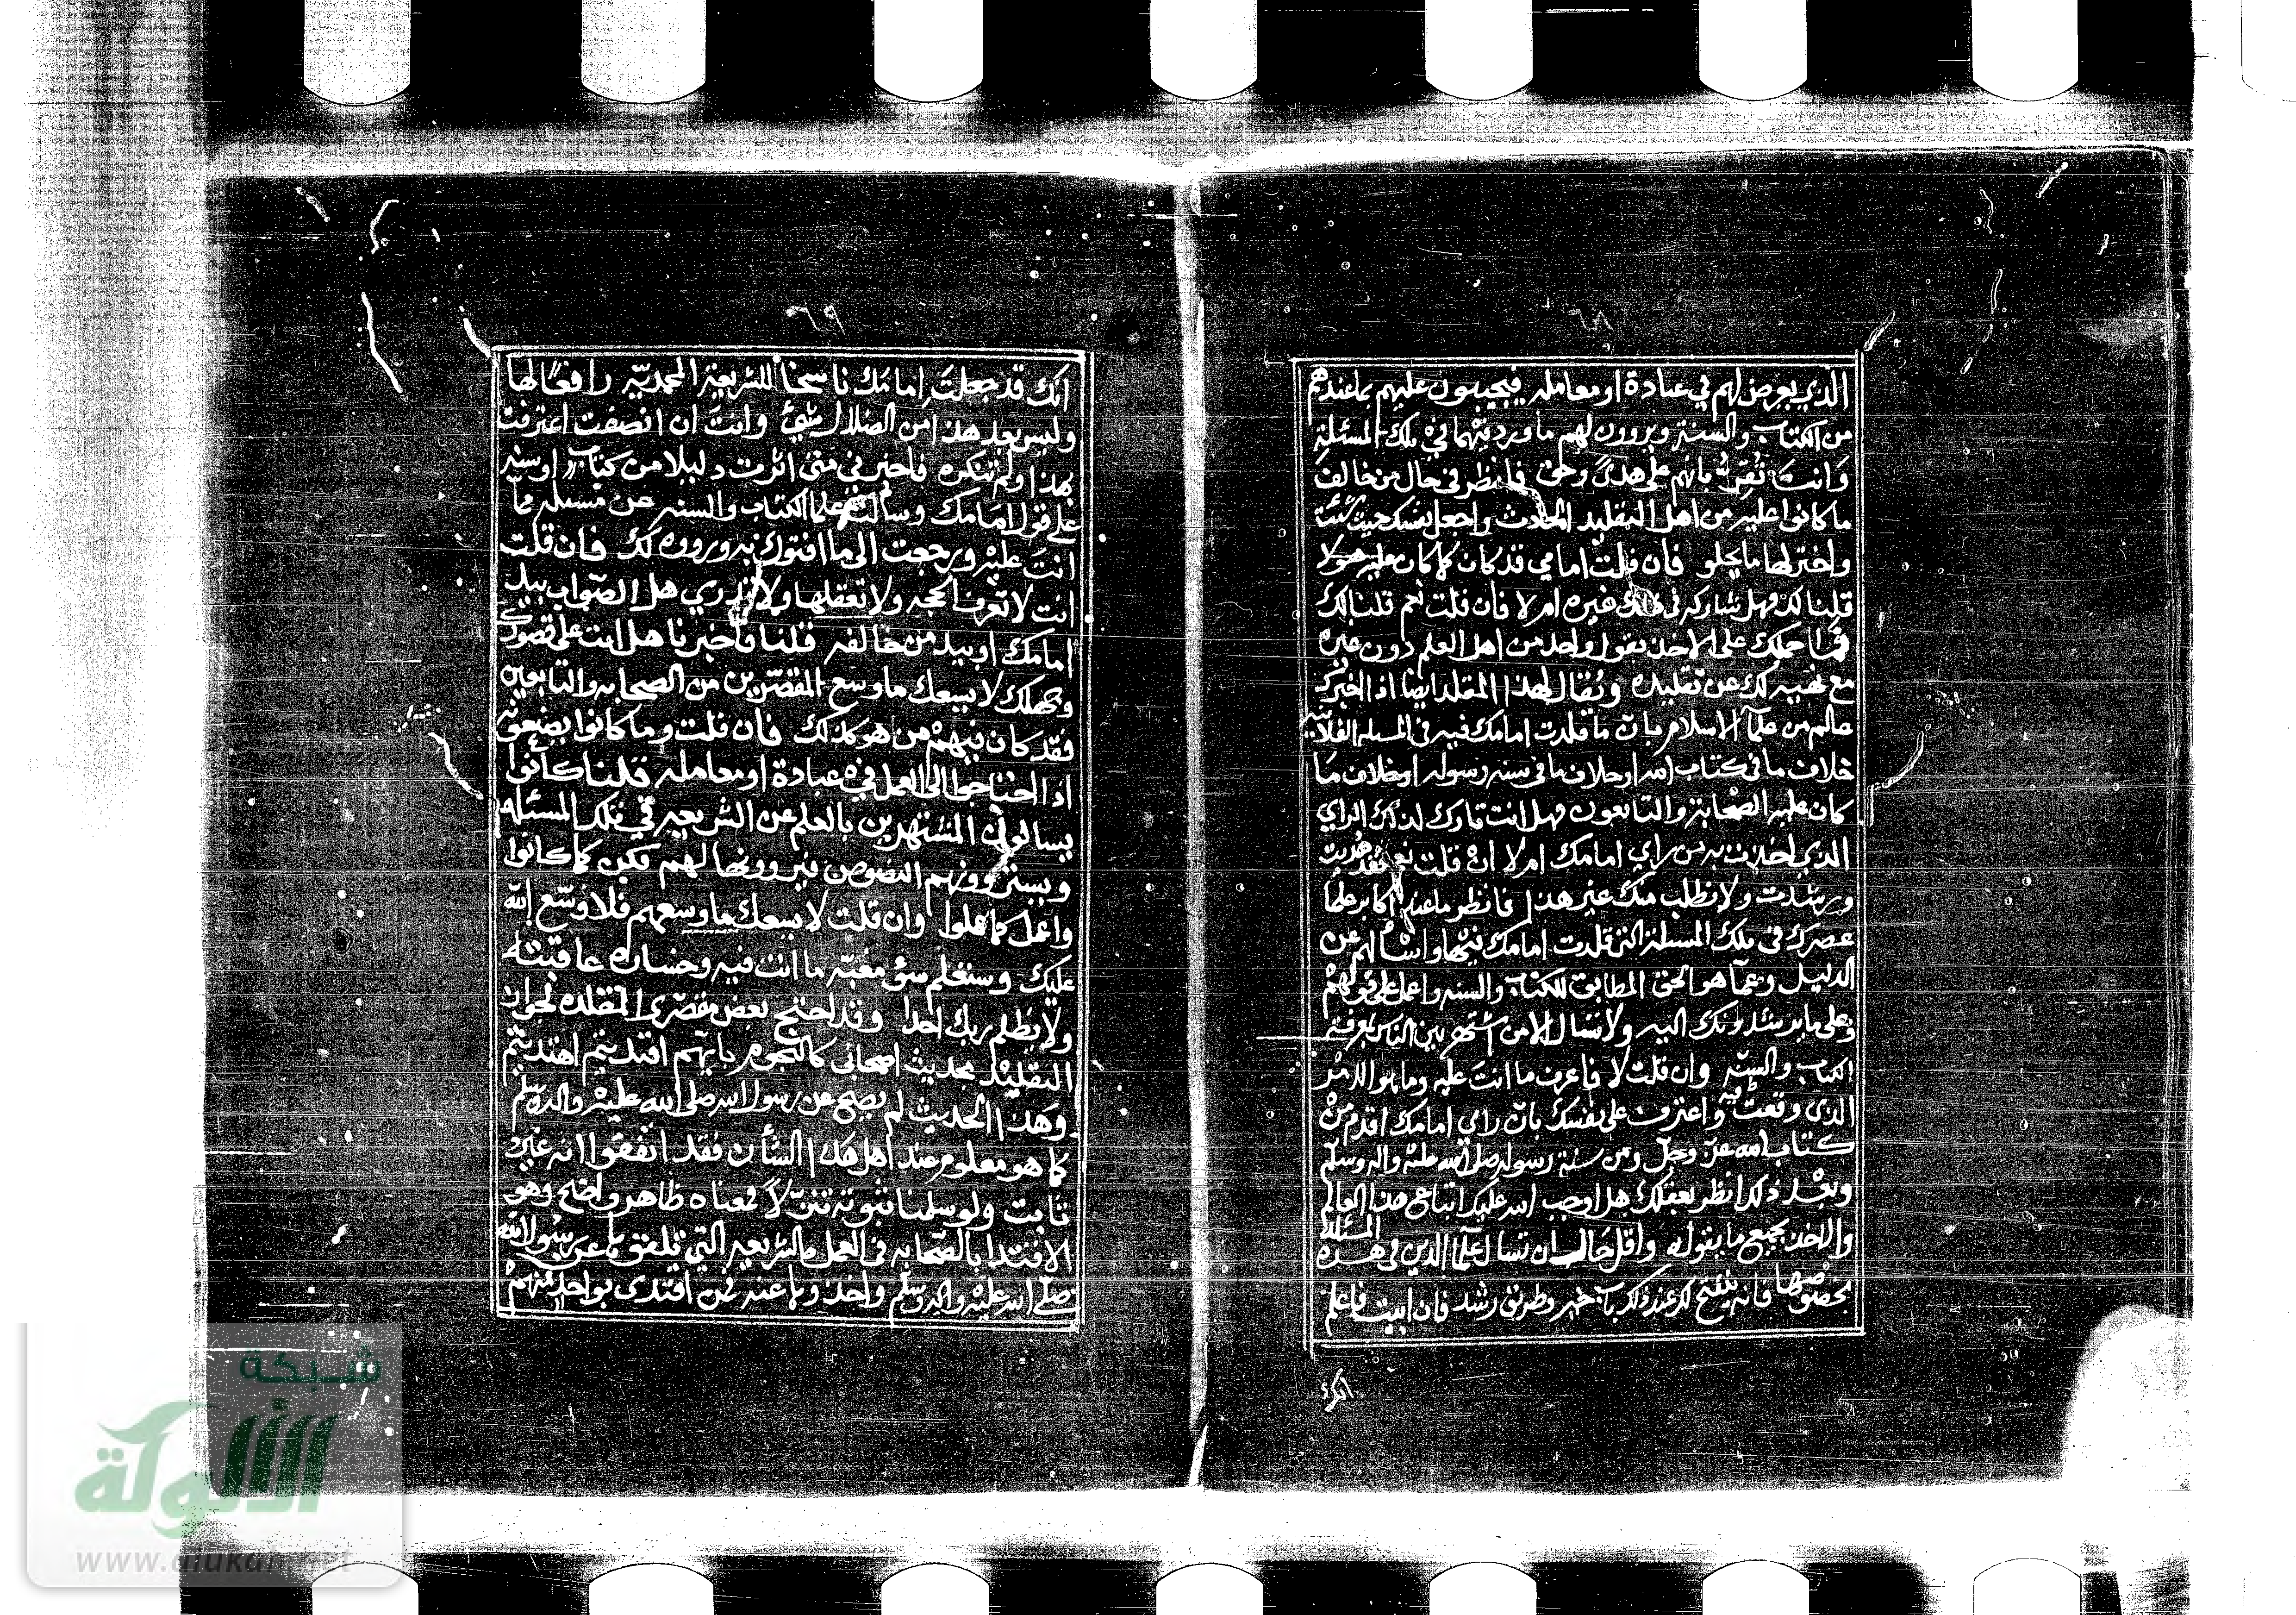 ٦٨
الذي يعرض لهم في عبادة او معامله فيجيبون عليهم بما عندهم
من الكتاب والسنة ويروون لهم ما ورد فيهما في تلك المسئلة
وانت تقر بانهم على هدى وحق فانظر في حال من خالف
ما كانوا عليه من اهل التقليد المحادث واجعل نفسك حيث شئت
واختر لها ما يحلو فان قلت امامي قد كان كما كان عليه هولا
قلنا لك فهل شاركه في ذلك غيره ام لا فان قلت نعم قلنا لك
فما حملك على الاخذ بقول واحد من اهل العلم دون غيره
مع نهيه لك عن تقليده ويقال لهذا المقلد ايضا اذا اخبرك
عالم من علماء الاسلام بان ما قلدت امامك فيه في المسله الفلانيه
خلاف ما في كتاب الله او خلاف ما في سنه رسوله او خلاف ما
كان عليه الصحابة والتابعون فهل انت تارك لذلك الراي
الذي اخذت به من راي امامك ام لا ان قلت نعم فقد هديت
ورشدت ولا نطلب منك غير هذا فانظر ما عند اكابر علما
عصرك في تلك المسئلة التي قلدت امامك فيها واسألهم عن
الدليل وعما هو الحق المطابق للكتاب والسنه واعمل على قولهم
وعلى ما يرشدونك اليه ولا تسال الا من اشتهر بين الناس بمعرفة
الكتاب والسنة وان قلت لا فاعرف ما انت عليه وما هو الامر
الذي وقعت فيه واعترف على نفسك بان راي امامك اقدم من
كتاب الله عز وجل ومن سنة رسوله صلى الله عليه واله وسلم
وبعد ذلك انظر بعقلك هل اوجب الله عليك اتباع هذا العالم
والاخذ بجميع ما يقوله واقل حال ان تسال علما الدين في هذه المسئله
بخصوصها فانه ينفتح لك عند ذلك باب خير وطريق رشد فان ابيت فاعلم
انك
٦٩
انك قد جعلت امامك ناسخا للشريعة المحمدية رافعا لها
وليس بعد هذا من الضلال شيئ وانت ان انصفت اعترفت
بهذا ولم تنكره فاخبرني متى اثرت دليلا من كتاب او سنه
على قول امامك وسالت علما الكتاب والسنه عن مسئله مما
انت عليه ورجعت الى ما افتوك به ورووه لك فان قلت
انت لا تعرف الحجه ولا تعقلها ولا تدري هل الصواب بيد
امامك او بيد من خالفه قلنا فاخبرنا هل انت على قصورك
وجهلك لا يسعك ما وسع المقصرين من الصحابه والتابعين
فقد كان فيهم من هو كذلك فان قلت وما كانوا يصنعون
اذا احتاجوا الى العمل في عبادة او معامله قلنا كانوا
يسالون المشتهرين بالعلم عن الشريعه في تلك المسئله
ويستروونهم النصوص فيروونها لهم فكن كما كانوا
واعمل كما عملوا وان قلت لا يسعك ما وسعهم فلا وسّع الله
عليك وستعلم سوء مغبّة ما انت فيه وخساره عاقبته
ولا يظلم ربك احدا وقد احتج بعض مقصري المقلده لجواز
التقليد بحديث اصحابي كالنجوم بايهم اقتديتم اهتديتم
وهذا الحديث لم يصح عن رسول الله صلى الله عليه واله وسلم
كما هو معلوم عند اهل هذا الشأن فقد اتفقوا انه غير
ثابت ولو سلمنا ثبوته تنزلا فمعناه ظاهر واضح وهو
الاقتدا بالصحابه في العمل بالشريعه التي تلقوها عن رسول الله
صلى الله عليه واله وسلم واخذوها عنه فمن اقتدى بواحد منهم
شبكة
الألوكة
www.alukah.net